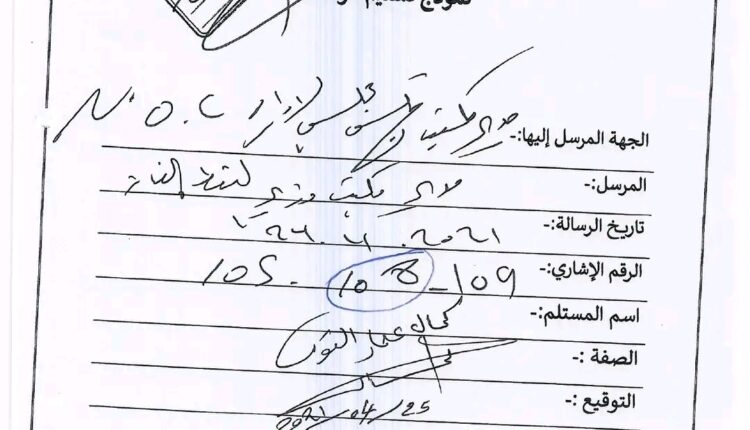 نموذج
الجهة المرسل إليها:- مدير مكتب رئيس مجلس إدارة N.O.C
المرسل:- مدير مكتب وزير النفط والغاز
تاريخ الرسالة:- 2021.4.24
الرقم الإشاري:- 105. 108-109
اسم المستلم:-
الصفة :-
التوقيع :-
2021/04/25